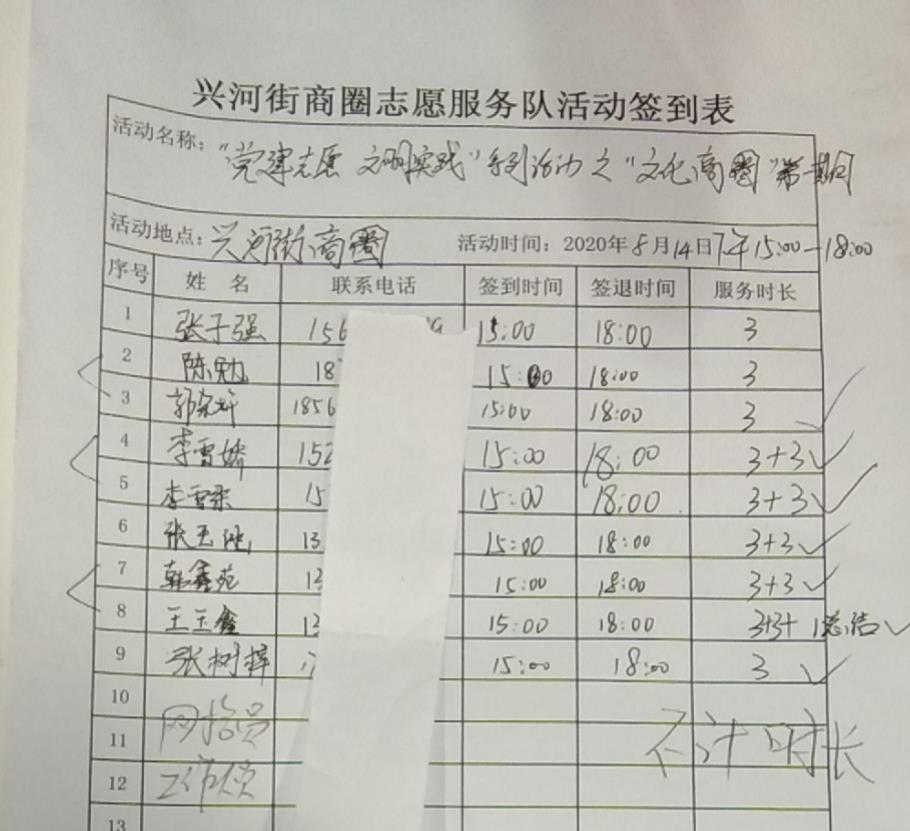 兴河街商圈志愿服务队活动签到表
活动名称："党建志愿 文明实践"系列活动之"文化商圈"第一期
活动地点：兴河街商圈 活动时间：2020年8月14日下午15:00-18:00
序号 姓 名 联系电话 签到时间 签退时间 服务时长
1 张子强 156 9 15:00 18:00 3
2 陈勉 18 15:00 18:00 3
3 1856 15:00 18:00 3 ✓
4 李雪娇 152 15:00 18:00 3+3 ✓
5 李雪柔 15 15:00 18:00 3+3 ✓
6 张玉 13 15:00 18:00 3+3 ✓
7 韩鑫苑 13 15:00 18:00 3+3 ✓
8 王玉鑫 13 15:00 18:00 3+3+1总结 ✓
9 张树梓 15:00 18:00 3 ✓
10
11 网格员 不计时长
12 工作人员
13